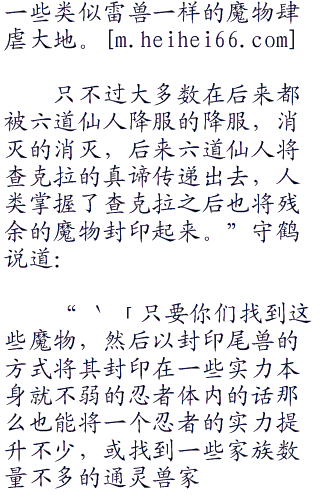 一些类似雷兽一样的魔物肆
虐大地。[m.heihei66.com]
只不过大多数在后来都
被六道仙人降服的降服，消
灭的消灭，后来六道仙人将
查克拉的真谛传递出去，人
类掌握了查克拉之后也将残
余的魔物封印起来。”守鹤
说道：
“ ‵「只要你们找到这
些魔物，然后以封印尾兽的
方式将其封印在一些实力本
身就不弱的忍者体内的话那
么也能将一个忍者的实力提
升不少，或找到一些家族数
量不多的通灵兽家